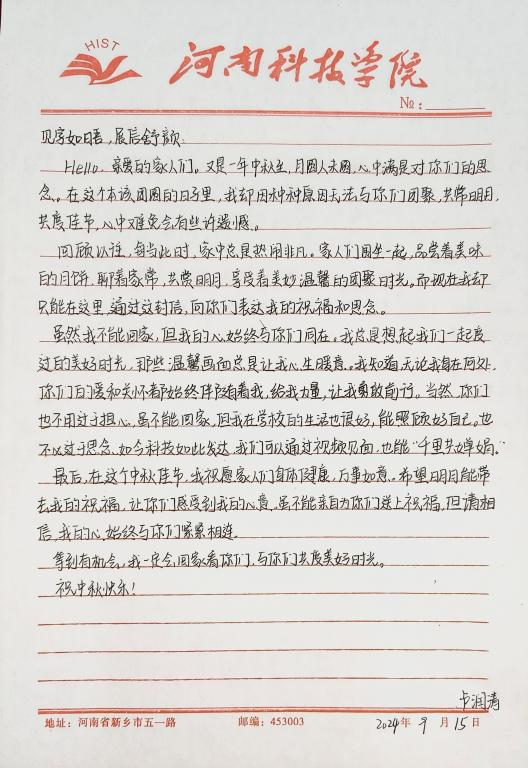 HIST
河南科技学院
№:
见字如晤，展信舒颜:
Hello，亲爱的家人们。又是一年中秋至，月圆人未圆，心中满是对你们的思
念。在这个本该团圆的日子里，我却因种种原因无法与你们团聚，共赏明月，
共度佳节，心中难免会有些许遗憾。
回顾以往，每当此时，家中总是热闹非凡。家人们围坐一起，品尝着美味
的月饼，聊着家常，共赏明月，享受着美妙温馨的团聚时光。而现在我却
只能在这里，通过这封信，向你们表达我的祝福和思念。
虽然我不能回家，但我的心始终与你们同在。我总是想起我们一起度
过的美好时光，那些温馨画面总是让我心生暖意。我知道，无论我身在何处，
你们的爱和关怀都始终伴随着我，给我力量，让我勇敢前行。当然，你们
也不用过于担心，虽不能回家，但我在学校的生活也很好，能照顾好自己。也
不必过于思念，如今科技如此发达，我们可以通过视频见面，也能“千里共婵娟。
最后，在这个中秋佳节，我祝愿家人们身体健康，万事如意。希望明月能带
去我的祝福，让你们感受到我的心意。虽不能亲自为你们送上祝福，但请相
信，我的心始终与你们紧紧相连。
等到有机会，我一定会回家看你们，与你们共度美好时光。
祝中秋快乐！
卢润涛
地址：河南省新乡市五一路 邮编：453003 2024年 9月 15日